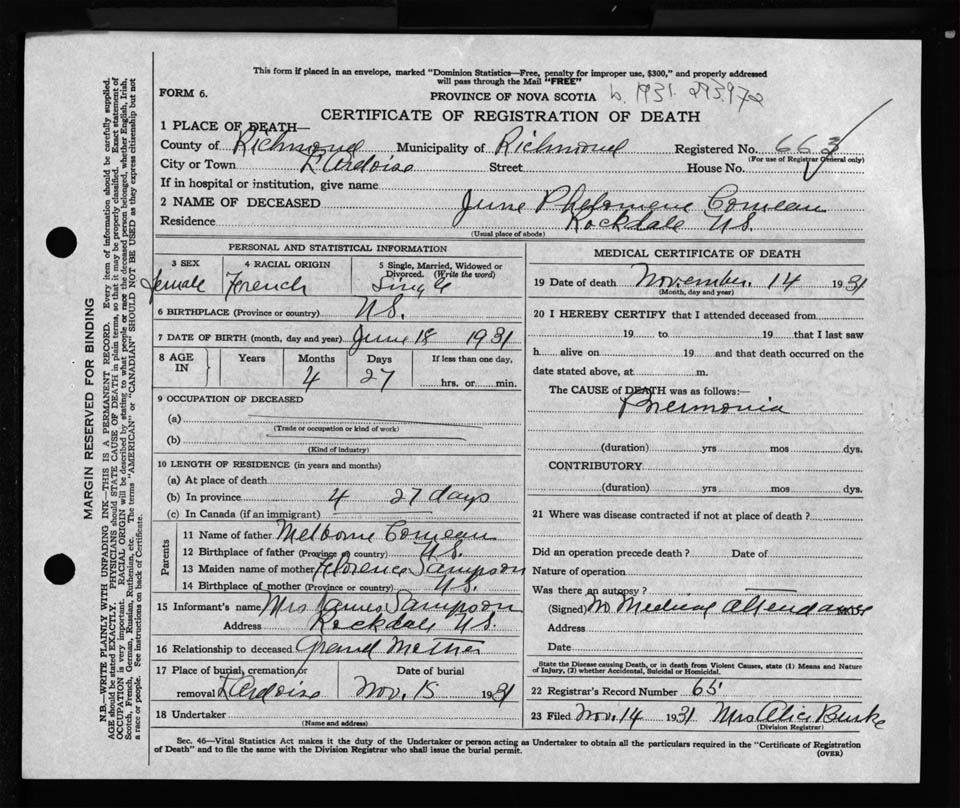 This form if placed in an envelope, marked "Dominion Statistics—Free, penalty for improper use, $300," and properly addressed
will pass through the Mail "FREE"
FORM 6.
PROVINCE OF NOVA SCOTIA b. 1931. 293972
CERTIFICATE OF REGISTRATION OF DEATH
1 PLACE OF DEATH—
County of Richmond Municipality of Richmond Registered No. 663
(For use of Registrar General only)
City or Town L'Ardoise Street House No.
If in hospital or institution, give name
2 NAME OF DECEASED June Phelomene Comeau
Residence Rockdale N.S.
(Usual place of abode)
PERSONAL AND STATISTICAL INFORMATION
3 SEX 4 RACIAL ORIGIN 5 Single, Married, Widowed or Divorced. (Write the word)
female French Single
6 BIRTHPLACE (Province or country) N.S.
7 DATE OF BIRTH (month, day and year) June 18 1931
8 AGE IN Years Months Days If less than one day,
4 27 hrs. or min.
9 OCCUPATION OF DECEASED
(a)
(Trade or occupation or kind of work)
(b)
(Kind of industry)
10 LENGTH OF RESIDENCE (in years and months)
(a) At place of death
(b) In province 4 27 days
(c) In Canada (if an immigrant)
Parents
11 Name of father Melborne Comeau
12 Birthplace of father (Province or country) N.S.
13 Maiden name of mother Florence Sampson
14 Birthplace of mother (Province or country) N.S.
15 Informant's name Mrs James Sampson
Address Rockdale N.S.
16 Relationship to deceased Grand Mother
17 Place of burial, cremation or Date of burial
removal L'Ardoise Nov. 15 1931
18 Undertaker
(Name and address)
MEDICAL CERTIFICATE OF DEATH
19 Date of death November 14 1931
(Month, day and year)
20 I HEREBY CERTIFY that I attended deceased from
19 to 19 that I last saw
h alive on 19 and that death occurred on the
date stated above, at m.
The CAUSE of DEATH was as follows:
Pnermonia
(duration) yrs mos dys.
CONTRIBUTORY
(duration) yrs mos dys.
21 Where was disease contracted if not at place of death?
Did an operation precede death? Date of
Nature of operation
Was there an autopsy?
(Signed) No Medical attendance
Address
Date
State the Disease causing Death, or in death from Violent Causes, state (1) Means and Nature
of Injury, (2) whether Accidental, Suicidal or Homicidal.
22 Registrar's Record Number 65
23 Filed Nov. 14 1931 Mrs Alice Burke
(Division Registrar)
Sec. 46—Vital Statistics Act makes it the duty of the Undertaker or person acting as Undertaker to obtain all the particulars required in the "Certificate of Registration
of Death" and to file the same with the Division Registrar who shall issue the burial permit.
(OVER)
MARGIN RESERVED FOR BINDING
N.B.—WRITE PLAINLY WITH UNFADING INK—THIS IS A PERMANENT RECORD. Every item of information should be carefully supplied.
AGE should be stated EXACTLY. PHYSICIANS should STATE CAUSE OF DEATH in plain terms, so that it may be properly classified. Exact statement of
OCCUPATION is very important. RACIAL ORIGIN will be described by stating to what people or race the deceased person belonged, whether English, Irish,
Scotch, French, German, Russian, Ruthenian, etc. The terms "AMERICAN" or "CANADIAN" SHOULD NOT BE USED as they express citizenship but not
a race or people. See instructions on back of Certificate.